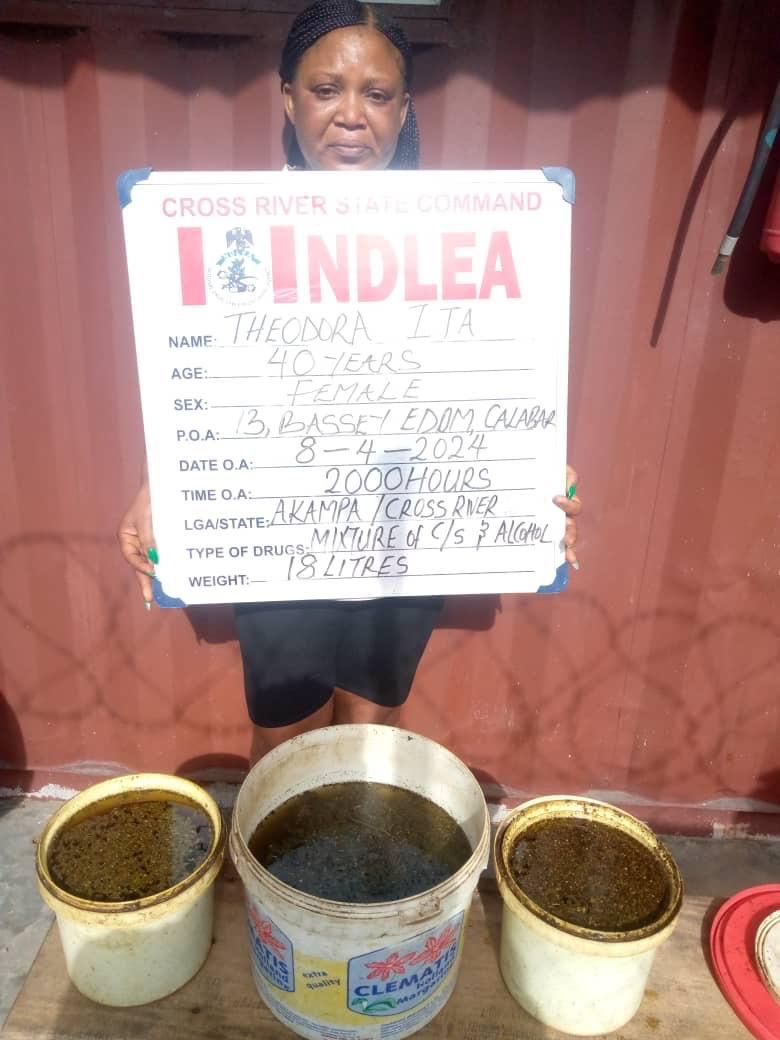 CROSS RIVER STATE COMMAND
NDLEA
NAME: THEODORA ITA
AGE: 40 YEARS
SEX: FEMALE
P.O.A: 13, BASSEY EDOM, CALABAR
DATE O.A: 8-4-2024
TIME O.A: 2000HOURS
LGA/STATE: AKAMPA / CROSS RIVER
TYPE OF DRUGS: MIXTURE of C/S & ALCOHOL
WEIGHT: 18 LITRES
extra
quality
CLEMATIS
Holland